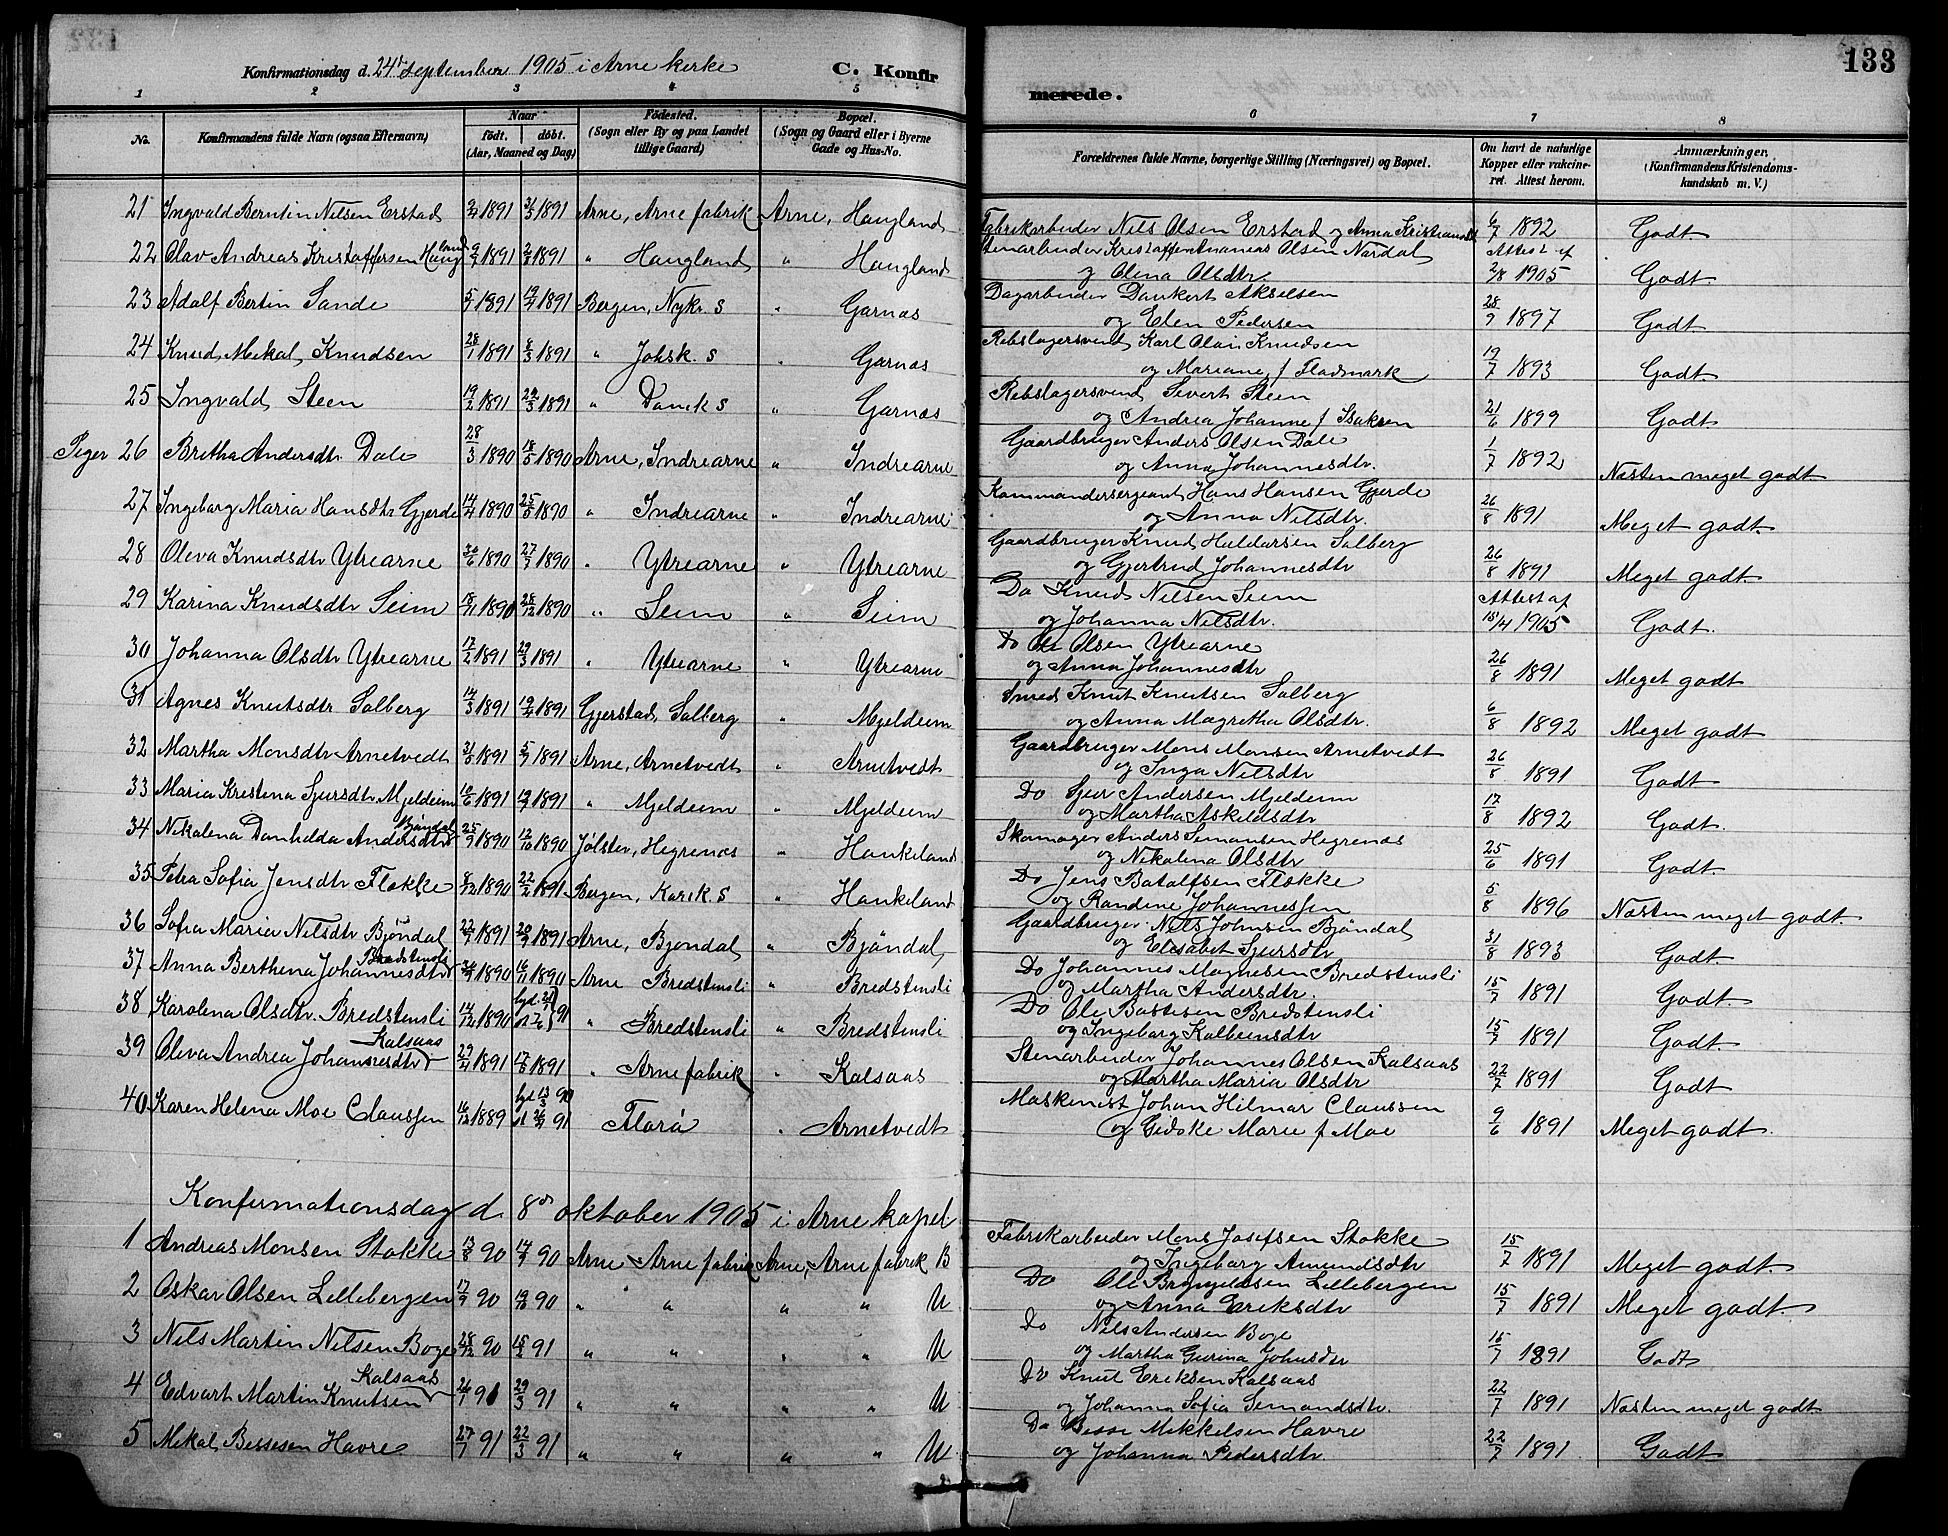 133
Konfirmationsdag d. 24de September 1905 i Arne kirke
C. Konfirmerede.
1 2 3 4 5 6 7 8
No.
Konfirmandens fulde Navn (ogsaa Efternavn)
Naar
födt. döbt.
(Aar, Maaned og Dag)
Födested.
(Sogn eller By og paa Landet tillige Gaard)
Bopæl.
(Sogn og Gaard eller i Byerne Gade og Hus-No.
Forældrenes fulde Navne, borgerlige Stilling (Næringsvei) og Bopæl.
Om havt de naturlige Kopper eller vakcineret. Attest herom.
Anmærkninger.
(Konfirmandens Kristendomskundskab m. V.)
21 Ingvald Berntin Nilsen Erstad 1891 1891 Arne, Arne fabrik Arne, Haugland Fabrikarbeider Nils Olsen Erstad og Anna 6/7 1892 Godt
22 Olav Andreas Kristoffersen Haugland 1891 1891 " Haugland " Haugland Stenarbeider Kristoffer Ananias Olsen Nordal Attest af
og Olena Olsdtr 1905 Godt.
23 Adolf Bertin Sande 1891 1891 Bergen, Nykr. S " Garnæs Dagarbeider Dankert Akselsen
og Elen Pedersen 28/9 1897 Godt
24 Knud Mikal Knudsen 28/1 1891 8/3 1891 " Johsk. S " Garnæs Rebslagersvend Karl Olai Knudsen
og Mariane f Fladmark 19/7 1893 Godt.
25 Ingvald Steen 19/2 1891 22/3 1891 " Domk S " Garnæs Rebslagersvend Sivert Steen
og Andrea Johanne f Isaksen 21/6 1899 Godt
Piger 26 Brita Andersdtr. Dale 28/3 1890 18/5 1890 Arne, Indrearne " Indrearne Gaardbruger Anders Olsen Dale
og Anna Johannesdtr. 1/7 1892 Næsten meget godt
27 Ingeborg Maria Hansdtr Gjerde 14/4 1890 25/5 1890 " Indrearne " Indrearne Kommandersergeant Hans Hansen Gjerde
og Anna Nilsdtr. 26/8 1891 Meget godt.
28 Oleva Knudsdtr Ytrearne 30/6 1890 27/7 1890 " Ytrearne " Ytrearne Gaardbruger Knud Haldorsen Solberg
og Gjertrud Johannesdtr 26/8 1891 Meget godt
29 Karina Knudsdtr Seim 18/11 1890 28/12 1890 " Seim " Seim Do Knud Nilsen Seim
og Johanna Nilsdtr. Attest af 18/4 1905 Godt.
30 Johanna Olsdtr Ytrearne 17/2 1891 29/3 1891 " Ytrearne " Ytrearne Do Ole Olsen Ytrearne
og Anna Johannesdtr 26/8 1891 Meget godt
31 Agnes Knutsdtr Solberg 14/3 1891 19/4 1891 Gjerstad, Solberg " Mjeldeim Smed Knut Knutsen Solberg
og Anna Magretha Olsdtr. 6/8 1892 Meget godt
32 Martha Monsdtr Arnetvedt 1891 1891 Arne, Arnetvedt " Arnetvedt Gaardbruger Mons Monsen Arnetvedt
og Inga Nilsdtr 26/8 1891 Godt
33 Maria Kristina Sjursdtr Mjeldeim 10/6 1891 19/7 1891 " Mjeldeim " Mjeldeim Do Sjur Andersen Mjeldeim
og Martha Askildsdtr 17/8 1892 Godt.
34 Nikolena Danhilda Andersdtr Bjöndal 25/9 1890 12/10 1890 Jölster, Hegrenes " Haukeland Skomager Anders Simonsen Hegrenæs
og Nikolina Olsdtr 25/6 1891 Godt.
35 Petra Sofia Jensdtr Flokke 8/12 1890 22/2 1891 Bergen, Korsk. S " Haukeland Do Jens Botolfsen Flokke
og Randine Johannessen 5/8 1896 Næsten meget godt.
36 Sofia Maria Nilsdtr Bjöndal 1891 1891 Arne, Bjöndal " Bjöndal Gaardbruger Nils Johnsen Bjöndal
og Elisabet Sjursdtr 31/8 1893 Godt.
37 Anna Berthina Johannesdtr Bredstensli 1890 16/11 1890 Arne Bredstensli " Bredstensli Do Johannes Magnesen Bredstensli
og Martha Andersdtr. 15/7 1891 Godt.
38 Karolena Olsdtr. Bredstensli 14/12 1890 91 " Bredstensli " Bredstensli Do Ole Bottesen Bredstensli
og Ingeborg Kolbeinsdtr 15/7 1891 Godt.
39 Oleva Andrea Johannesdtr Kalsaas 29/4 1891 1891 " Arne fabrik " Kalsaas Stenarbeider Johannes Olsen Kalsaas
og Martha Maria Olsdtr 22/7 1891 Godt
40 Karen Helena Moe Claussen 16/12 1889 91 Florö " Arnetvedt Maskinist Johan Hilmar Claussen
og Gidske Marie f Moe 9/6 1891 Meget godt.
Konfirmationsdag d. 8de oktober 1905 i Arne kapel
1 Andreas Monsen Stokke 13/8 90 14/9 90 Arne Arne fabrik Arne, Arne fabrik B Fabrikarbeider Mons Josefsen Stokke
og Ingeborg Amundsdtr 15/7 1891 Meget godt.
2 Oskar Olsen Lillebergen 17/9 90 19/10 90 " " " " U Do Ole Brynjeldsen Lillebergen
og Anna Eriksdtr 15/7 1891 Meget godt.
3 Nils Martin Nilsen Boge 28/12 90 15/2 91 " " " " U Do Nils Andersen Boge
og Martha Gurina Johnsdtr 15/7 1891 Godt
4 Edvart Martin Knutsen Kalsaas 26/1 91 29/3 91 " " " " U Do Knut Eriksen Kalsaas
og Johanna Sofia Simonsdtr. 22/7 1891 Næsten meget godt
5 Mikal Bessesen Havre 27/1 91 22/3 91 " " " " U Do Besse Mikkelsen Havre
og Johanna Pedersdtr 22/7 1891. Godt